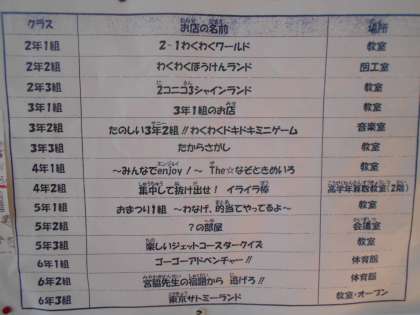 クラス お店の名前 場所
2年1組 2-1わくわくワールド 教室
2年2組 わくわくぼうけんランド 図工室
2年3組 2コニコ3シャインランド 教室
3年1組 3年1組のお店 教室
3年2組 たのしい3年2組!!わくわくドキドキミニゲーム 音楽室
3年3組 たからさがし 教室
4年1組 〜みんなでenjoy!〜 The☆なぞときめいろ 教室
4年2組 集中して抜け出せ! イライラ棒 高学年算数教室(2階)
5年1組 おまつり1組 〜わなげ、的当てやってるよ〜 教室
5年2組 ?の部屋 会議室
5年3組 楽しいジェットコースタークイズ 教室
6年1組 ゴーゴーアドベンチャー!! 体育館
6年2組 宮脇先生の宿題から 逃げろ!! 体育館
6年3組 東京サトミーランド 教室・オープン